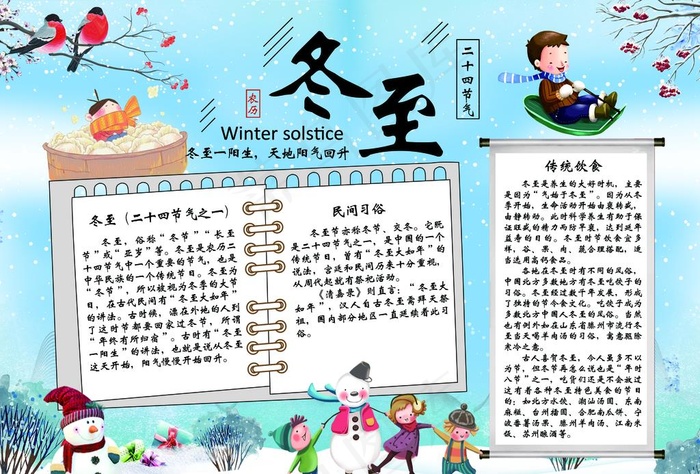 冬至
二十四节气
农历
Winter solstice
冬至一阳生，天地阳气回升
冬至（二十四节气之一）
冬至，俗称“冬节”“长至
节”或“亚岁”等。冬至是农历二
十四节气中一个重要的节气，也是
中华民族的一个传统节日。冬至为
“冬节”，所以被视为冬季的大节
日，在古代民间有“冬至大如年”
的讲法。古时候，漂在外地的人到
了这时节都要回家过冬节，所谓
“年终有所归宿”。古时有“冬至
一阳生”的讲法，也就是说从冬至
这天开始，阳气慢慢开始回升。
民间习俗
冬至节亦称冬节、交冬。它既
是二十四节气之一，是中国的一个
传统节日，曾有“冬至大如年”的
说法，宫廷和民间历来十分重视，
从周代起就有祭祀活动。
《清嘉录》则直言：“冬至大
如年”，汉人自古冬至需拜天祭
祖，国内部分地区一直延续着此习
俗。
传统饮食
冬至是养生的大好时机，主要
是因为“气始于冬至”。因为从冬
季开始，生命活动开始由衰转盛，
由静转动。此时科学养生有助于保
证旺盛的精力而防早衰，达到延年
益寿的目的。冬至时节饮食宜多
样，谷、果、肉、蔬合理搭配，适
当选用高钙食品。
各地在冬至时有不同的风俗，
中国北方多数地方有冬至吃饺子的
习俗。冬至经过数千年发展，形成
了独特的节令食文化。吃饺子成为
多数北方中国人冬至的风俗。当然
也有例外如在山东省滕州市流行冬
至当天喝羊肉汤的习俗，寓意驱除
寒冷之意。
古人喜贺冬至，今人虽多不以
为节，但冬节再怎么说也是“年时
八节”之一，吃货们还是不会放过
这有着各种冬至特色美食的节日
的：如北方水饺、潮汕汤圆、东南
麻糍、台州擂圆、合肥南瓜饼、宁
波番薯汤果、滕州羊肉汤、江南米
饭、苏州酿酒等。